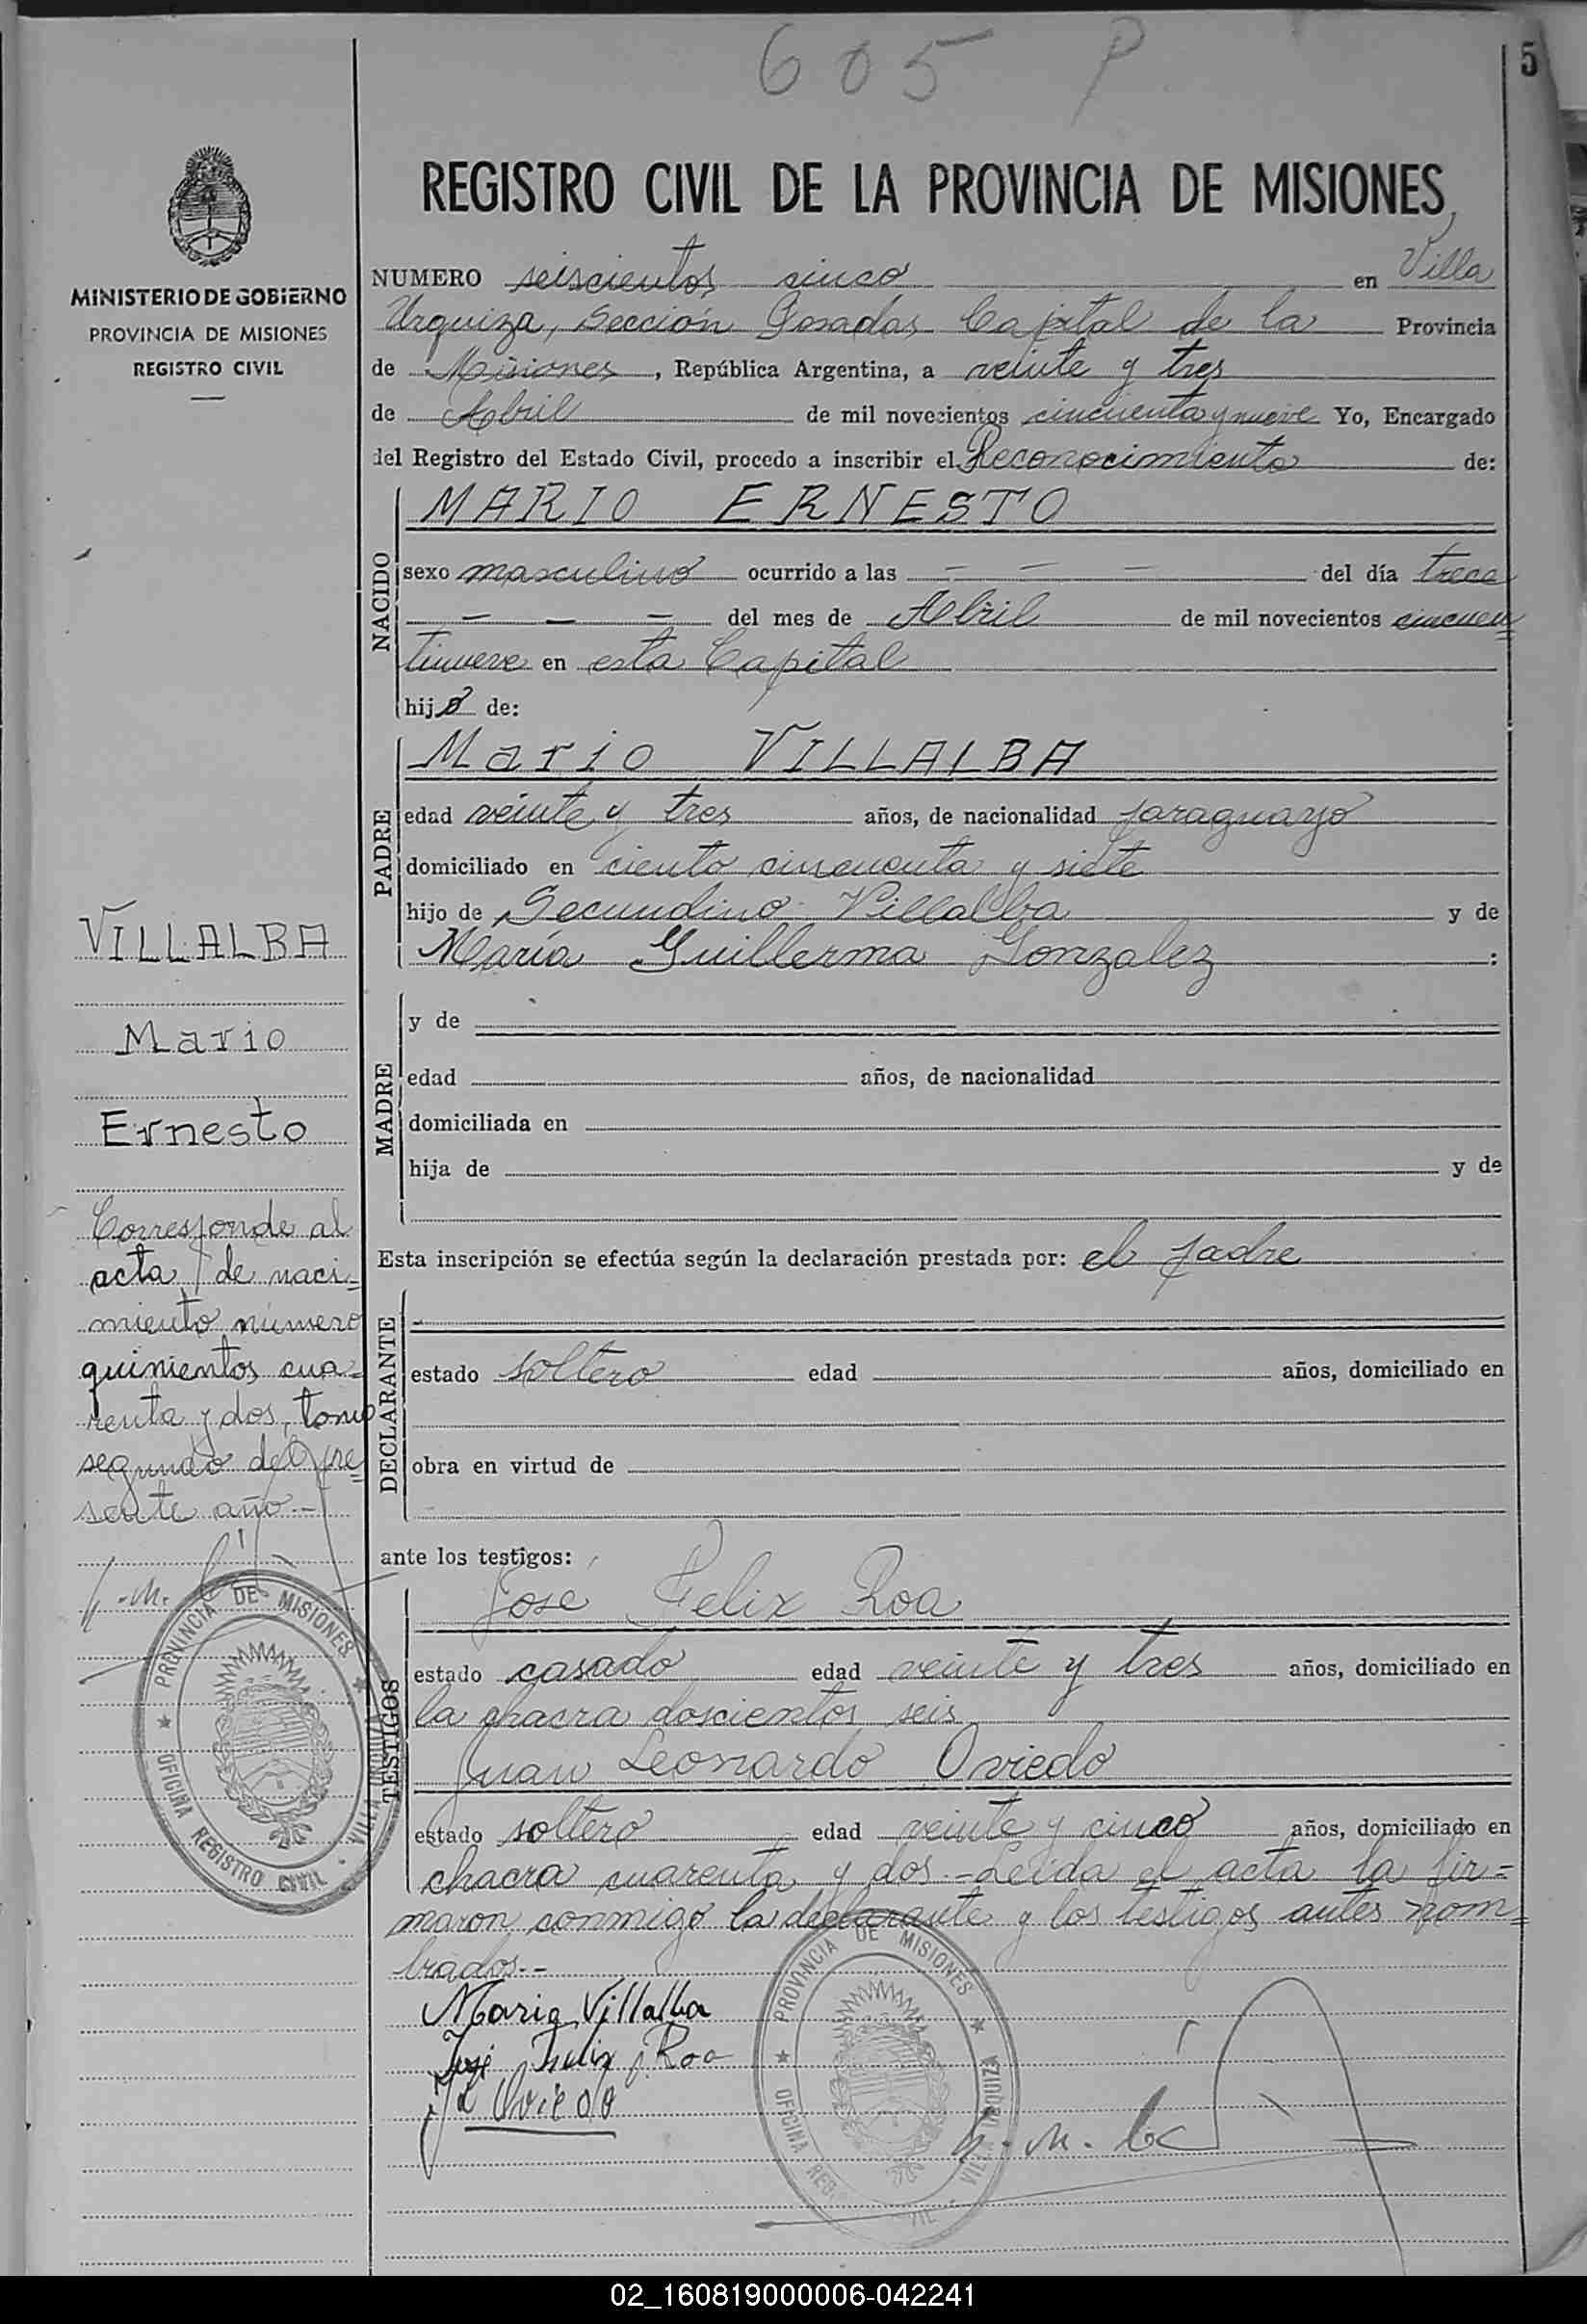 605 P
5
MINISTERIO DE GOBIERNO
PROVINCIA DE MISIONES
REGISTRO CIVIL
REGISTRO CIVIL DE LA PROVINCIA DE MISIONES
NUMERO seiscientos cinco en Villa
Urquiza, Sección Posadas Capital de la Provincia
de Misiones, República Argentina, a veinte y tres
de Abril de mil novecientos cincuenta y nueve Yo, Encargado
del Registro del Estado Civil, procedo a inscribir el Reconocimiento de:
NACIDO
MARIO ERNESTO
sexo masculino ocurrido a las - - - del día trece
- - - del mes de Abril de mil novecientos cincuen
tinueve en esta Capital
hijo de:
PADRE
Mario VILLALBA
edad veinte y tres años, de nacionalidad paraguayo
domiciliado en ciento cincuenta y siete
hijo de Secundino Villalba y de
María Guillerma Gonzalez :
MADRE
y de
edad años, de nacionalidad
domiciliada en
hija de y de
Esta inscripción se efectúa según la declaración prestada por: el padre
DECLARANTE
estado soltero edad años, domiciliado en
obra en virtud de
ante los testigos:
TESTIGOS
José Felix Roa
estado casado edad veinte y tres años, domiciliado en
la chacra doscientos seis
Juan Leonardo Oviedo
estado soltero edad veinte y cinco años, domiciliado en
chacra cuarenta y dos.- Leída el acta la fir=
maron conmigo la declarante y los testigos antes nom=
brados.--
Mario Villalba
José Felix Roa
J L Oviedo
VILLALBA
Mario
Ernesto
Corresponde al
acta de naci=
miento número
quinientos cua=
renta y dos, tomo
segundo del pre=
sente año.-
PROVINCIA DE MISIONES
OFICINA REGISTRO CIVIL
VILLA URQUIZA
PROVINCIA DE MISIONES
OFICINA REG VIL
VILLA URQUIZA
02_160819000006-042241